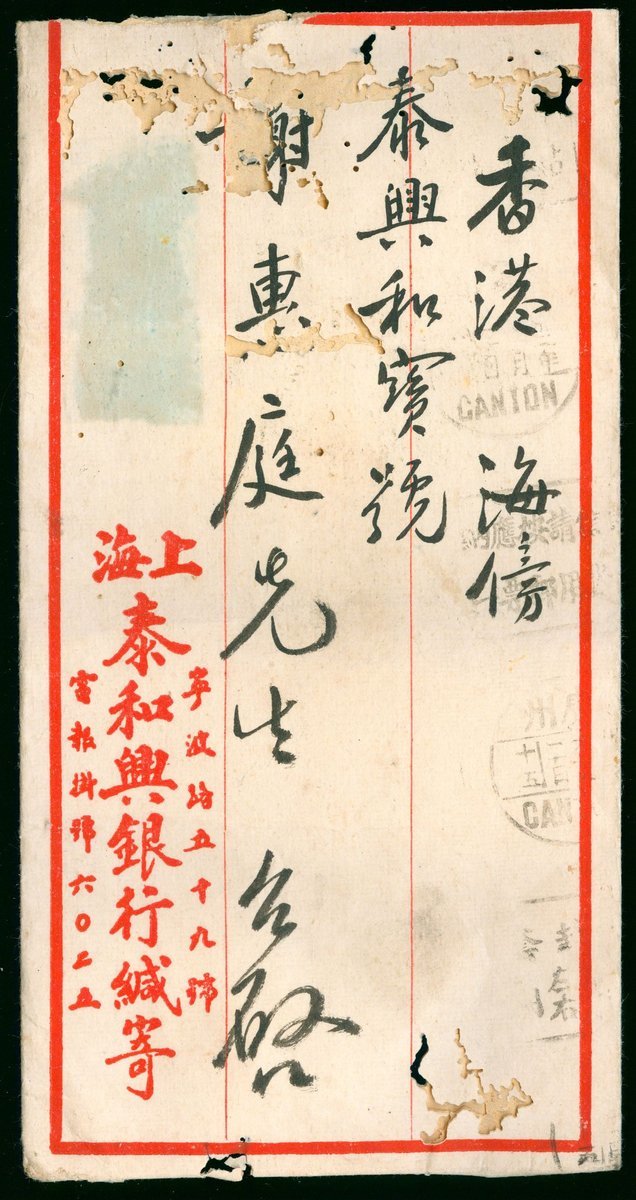 CANTON
州
CAN
香港海傍
泰興和寶號
謝惠庭先生台啓
上海
寧波路五十九號
泰和興銀行緘寄
電報掛號六〇二五